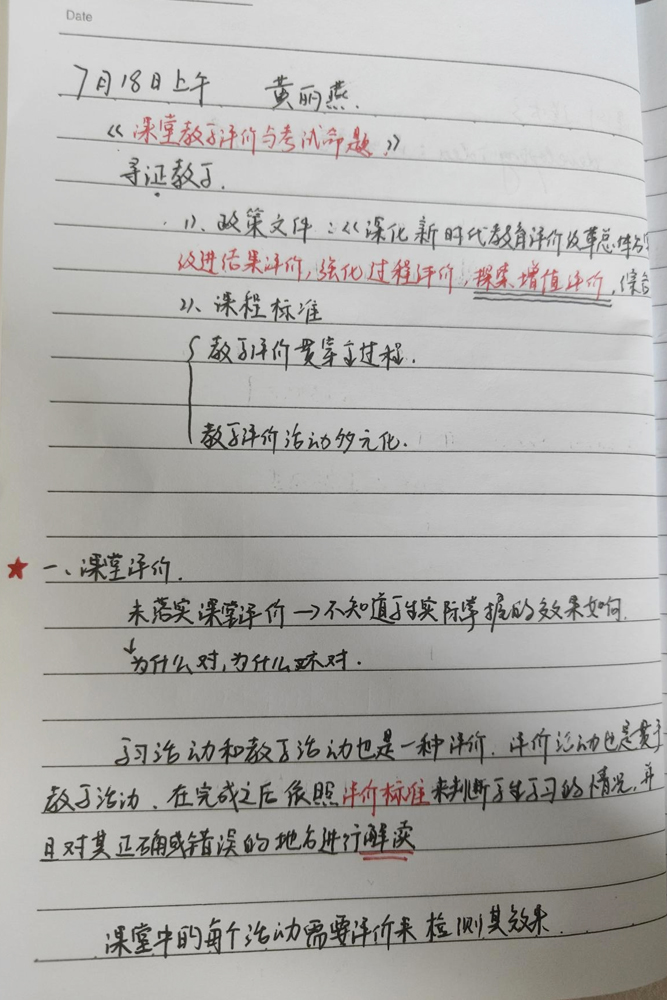 Date
7月18日上午 黄丽燕.
《课堂教学评价与考试命题》
寻证教学.
1)、政策文件:《深化新时代教育评价改革总体方
改进结果评价,强化过程评价,探索增值评价,综合
2)、课程标准
教学评价贯穿全过程.
教学评价活动多元化.
★ 一、课堂评价.
未落实课堂评价→不知道学生实际掌握的效果如何.
↓为什么对,为什么不对.
学习活动和教学活动也是一种评价.评价活动也是贯于
教学活动、在完成之后依照评价标准来判断学生学习的情况,并
且对其正确或错误的地方进行解读
课堂中的每个活动需要评价来检测其效果.